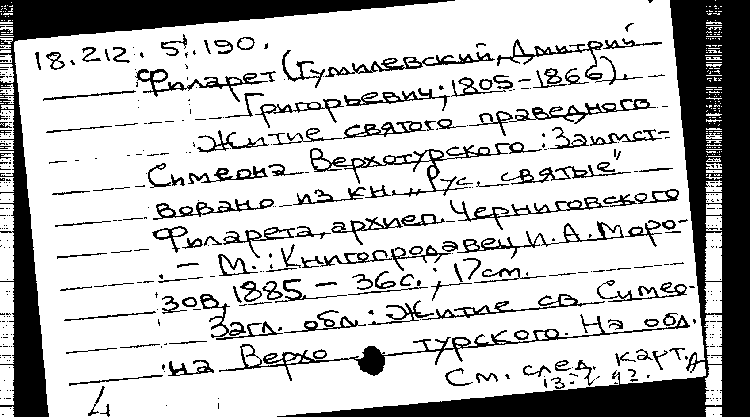 18.212.5.190.
Филарет (Гумилевский, Дмитрий
Григорьевич; 1805-1866).
Житие святого праведного
Симеона Верхотурского: Заимст-
вовано из кн. „Рус. святые"
Филарета, архиеп. Черниговского
. – М.: Книгопродавец И.А. Моро-
зов, 1885. – 36с.; 17см.
Загл. обл.: Житие св. Симео-
на Верхо турского. На обл.
См. след. карт.
4